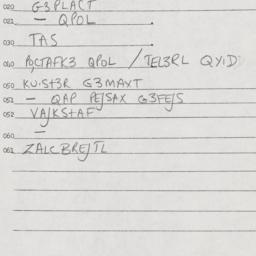 020 G3PLACT
021 — QPOL .
030 TAS .
040 PQCTAFK3 QPOL / TEL3RL QYID
050 KUIST3R G3MAXT
051 — QAP PEJSAX G3FEJS
052 VAJKSTAF
060 —
061 ZALCBREJTL